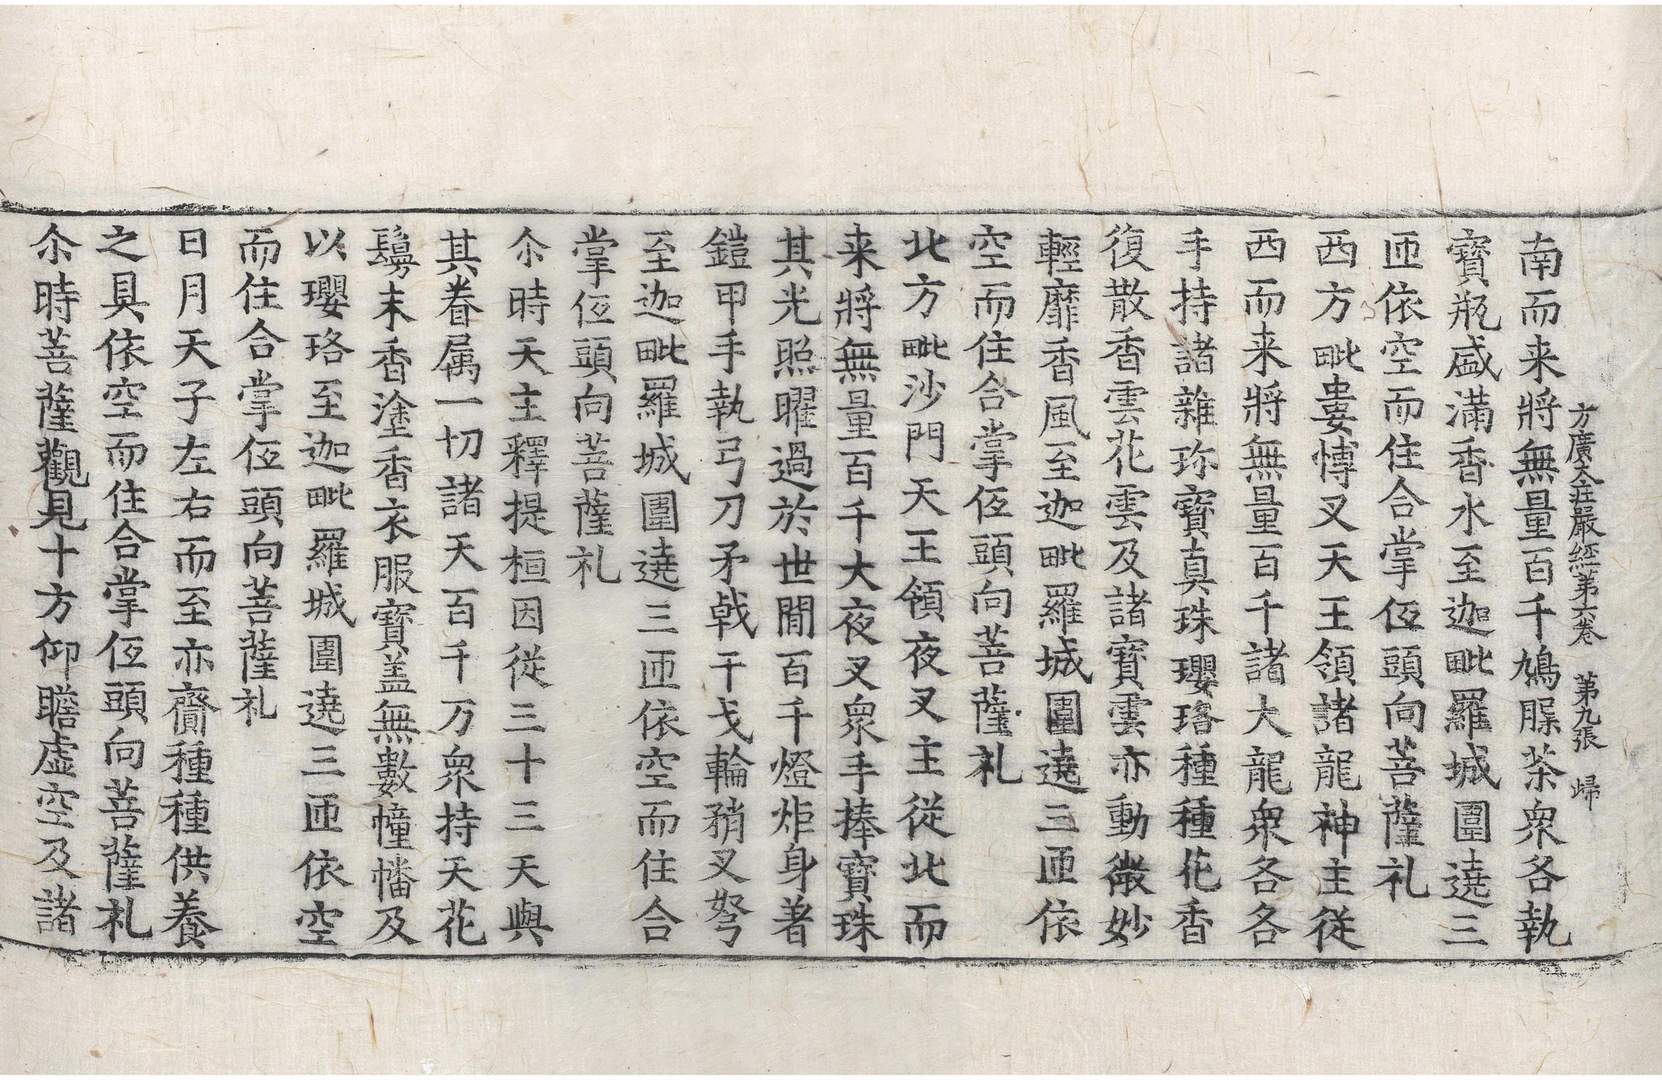 方廣大莊嚴經第六卷 第九張 歸
南而来將無量百千鳩脲茶衆各執
寶瓶盛滿香水至迦毗羅城圍遶三
匝依空而住合掌伍頭向菩薩礼
西方毗婁愽叉天王領諸龍神主従
西而来將無量百千諸大龍衆各各
手持諸雜珎寶真珠瓔珞種種花香
復散香雲花雲及諸寶雲亦動微妙
輕靡香風至迦毗羅城圍遶三匝依
空而住合掌伍頭向菩薩礼
北方毗沙門天王領夜叉主從北而
来將無量百千大夜叉衆手捧寶珠
其光照曜過於世閒百千燈炬身著
鎧甲手執弓刀矛戟干戈輪矟叉弩
至迦毗羅城圍遶三匝依空而住合
掌伍頭向菩薩礼
尒時天主釋提桓因従三十三天與
其眷属一切諸天百千万衆持天花
鬘末香塗香衣服寶盖無數幢幡及
以瓔珞至迦毗羅城圍遶三匝依空
而住合掌伍頭向菩薩礼
日月天子左右而至亦齎種種供養
之具依空而住合掌伍頭向菩薩礼
尒時菩薩觀見十方仰瞻虛空及諸